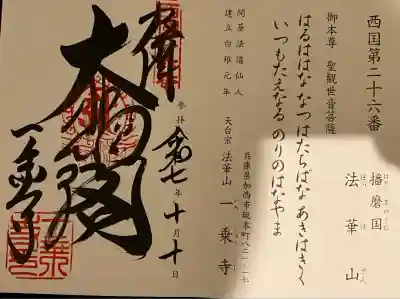 西国第二十六番
播磨国
はりまのくに
法華山
ほっけさん
御本尊 聖観世音菩薩
はるははな なつはたちばな あきはきく
いつもたえなる のりのはなやま
兵庫県加西市坂本町八二一-一七
開基 法道仙人
建立 白雉元年
天台宗 法華山 一乗寺
参拝 令和七年十月十日
大悲閣
一乗寺